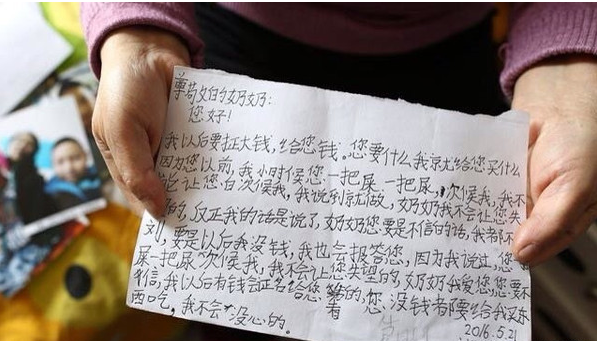 尊敬的奶奶:
您好!
我以后要挣大钱,给您钱。您要什么我就给您买什么
因为您以前,我小时候您一把屎一把尿,次候我,我不
能让您白次候我,我说到就做,奶奶我不会让您失
的,反正我的话是说了,奶奶您要是不信的话,我都不
要是以后我没钱,我也会报答您,因为我说过,您
屎一把尿次候我,我不会让您失望的,奶奶我爱您,您要不
信,我以后有钱会正名给您 看的,您没钱都要给我买东
西吃,我不会没心的。
2016.5.21